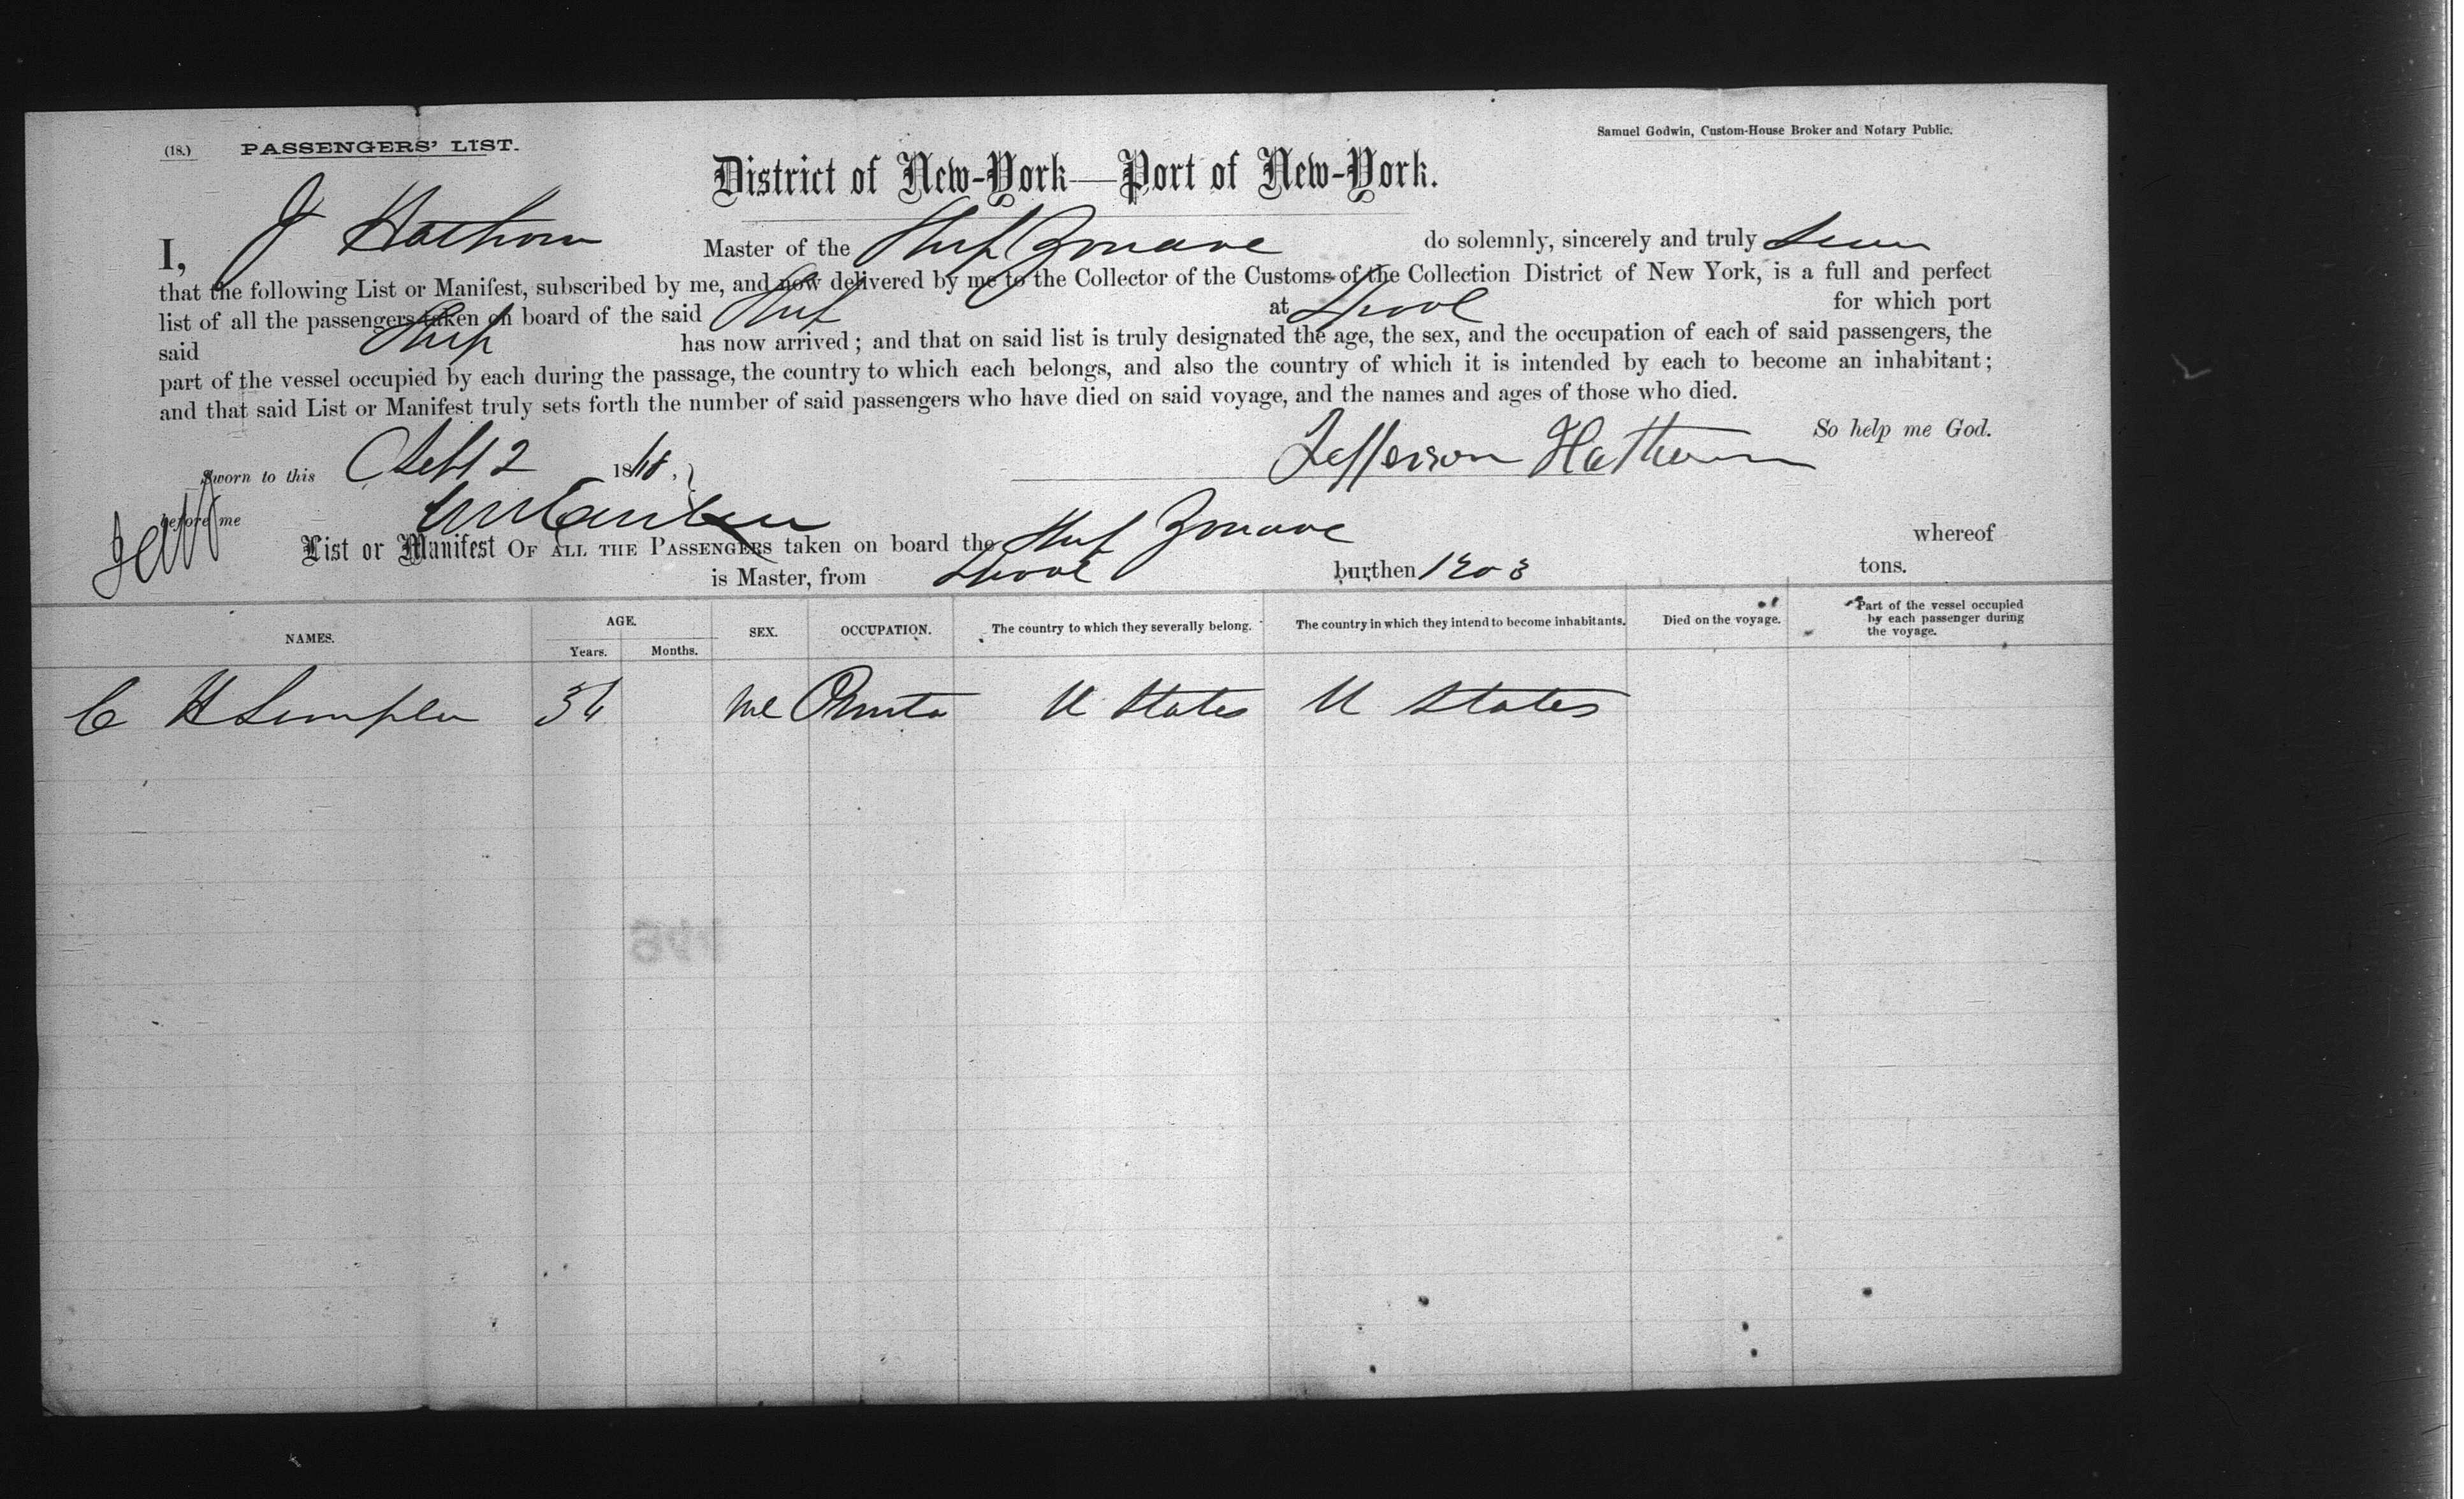 (18.) PASSENGERS' LIST.
Samuel Godwin, Custom-House Broker and Notary Public.
District of New-York—Port of New-York.
I, J Hathorn Master of the Ship Zouave do solemnly, sincerely and truly Swear
that the following List or Manifest, subscribed by me, and now delivered by me to the Collector of the Customs of the Collection District of New York, is a full and perfect
list of all the passengers taken on board of the said Ship at Lpool for which port
said Ship has now arrived; and that on said list is truly designated the age, the sex, and the occupation of each of said passengers, the
part of the vessel occupied by each during the passage, the country to which each belongs, and also the country of which it is intended by each to become an inhabitant;
and that said List or Manifest truly sets forth the number of said passengers who have died on said voyage, and the names and ages of those who died.
So help me God.
Sworn to this Sept 2 1868, Jefferson Hathorn
before me
List or Manifest OF ALL THE PASSENGERS taken on board the Ship Zouave whereof
is Master, from Lpool burthen 1203 tons.
NAMES. AGE. Years. Months. SEX. OCCUPATION. The country to which they severally belong. The country in which they intend to become inhabitants. Died on the voyage. Part of the vessel occupied by each passenger during the voyage.
C H 36 Me U States U States